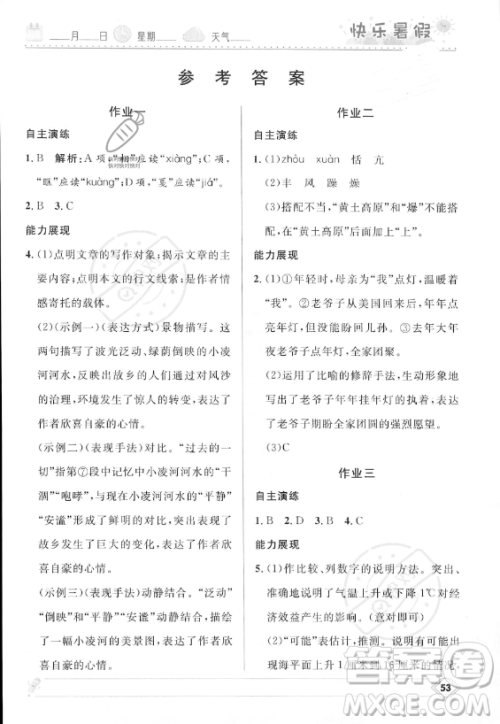 月 日 星期 天气 快乐暑假
参考答案
作业一
自主演练
1. B 解析：A 项，“相”应读“xiāng”；C 项，
“眶”应读“kuàng”；D 项，“戛”应读“jiá”。
2. B 3. C
能力展现
4. (1)点明文章的写作对象；揭示文章的主
要内容；点明本文的行文线索；是作者情
感寄托的载体。
(2)(示例一)(表达方式)景物描写。
描写了波光泛动、绿荫倒映的小凌
河河水，反映出故乡的人们对风沙
的治理，环境发生了惊人的转变，表
达了作者欣喜自豪的心情。
(示例二)(表现手法)对比。
例如第⑦段中记忆中小凌河河水的“干
涸”“咆哮”与现在河水的“平静”
“安谧”形成了鲜明的对比，写出了
故乡的巨大的变化，表达了作者欣
喜自豪的心情。
(示例三)(表现手法)动静结合。“泛动”
“倒映”和“平静”“安谧”动静结合，描绘
了一幅小凌河的美景图，表达了作者欣
喜自豪的心情。
作业二
自主演练
1. (1)zhōu xuàn 恬 亢
(2)丰 风 躁 燥
(3)搭配不当，“黄土高原”和“爆”不能搭
配，在“黄土高原”后面加上“上”。
能力展现
2. (1)①年轻时，母亲为“我”点灯，温暖着
“我”。②老爷子从美国回来后，年年去
点年灯，盼着他回儿孙。③去年大年
夜老爷子点年灯，全家团聚。
(2)运用了比喻的修辞手法，生动形象地
描写了老爷子年年挂年灯的执着，表达
了对老爷子期盼全家团圆的强烈愿望。
(3)C
作业三
自主演练
1. B 2. A 3. B 4. C
能力展现
5. (1)作比较、列数字的说明方法。突出、
准确地说明了气温上升或下降1℃对经
济效益产生的影响。
(2)“可能”表估计，推测。说明了有可能
出现海平面上升18厘米的
53
答案圈
MXQE.COM